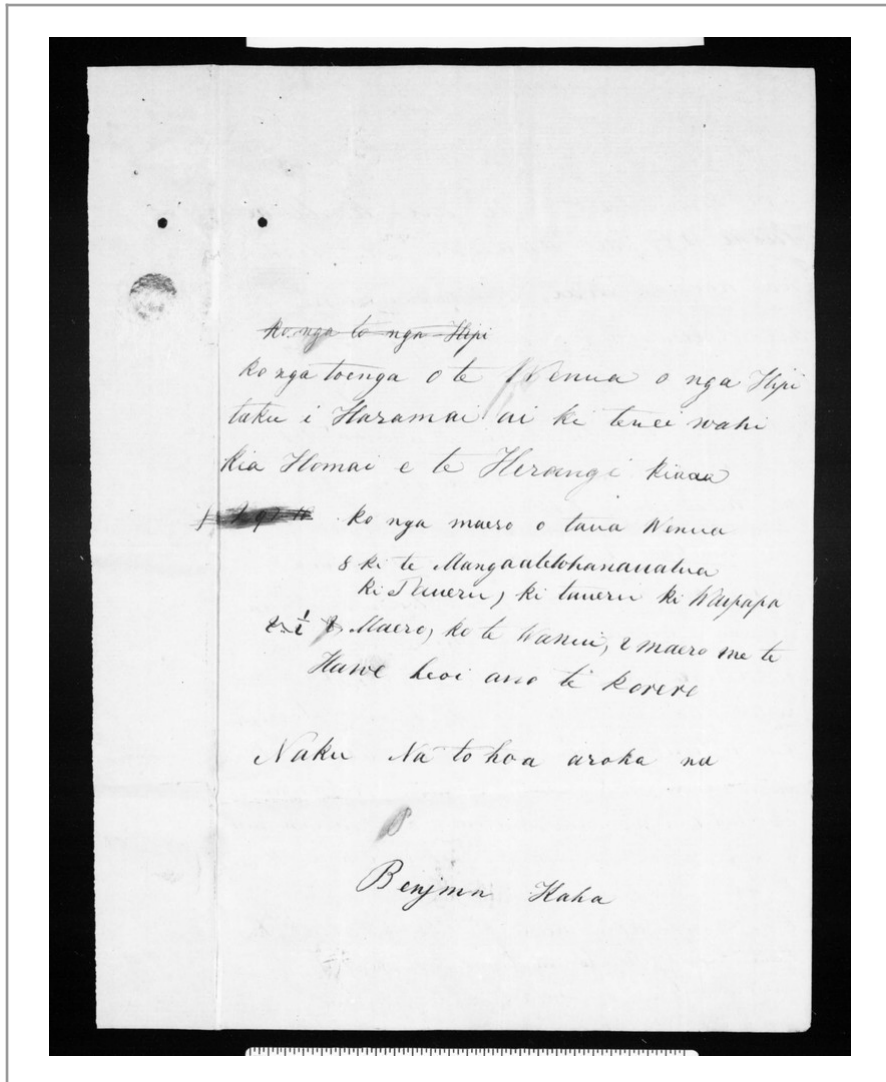 ko nga to nga Hipi
ko nga toenga o te Wenua o nga Hipi
taku i Haramai ai ki tenei wahi
kia Homai e te Herangi kiaaa
ko nga maero o taua Wenua
8 ki te
ki Taueru, ki taueru ki Waipapa
8, Maero, ko te Wanui, 2 maero me te
Hawe heoi ano te korero
Naku Na to hoa aroha na
B
Benjmn Kaha